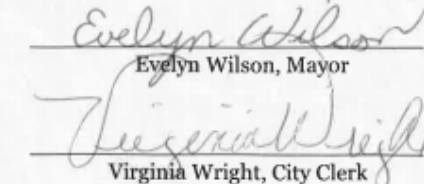 Evelyn Wilson
Evelyn Wilson, Mayor
Virginia Wright
Virginia Wright, City Clerk